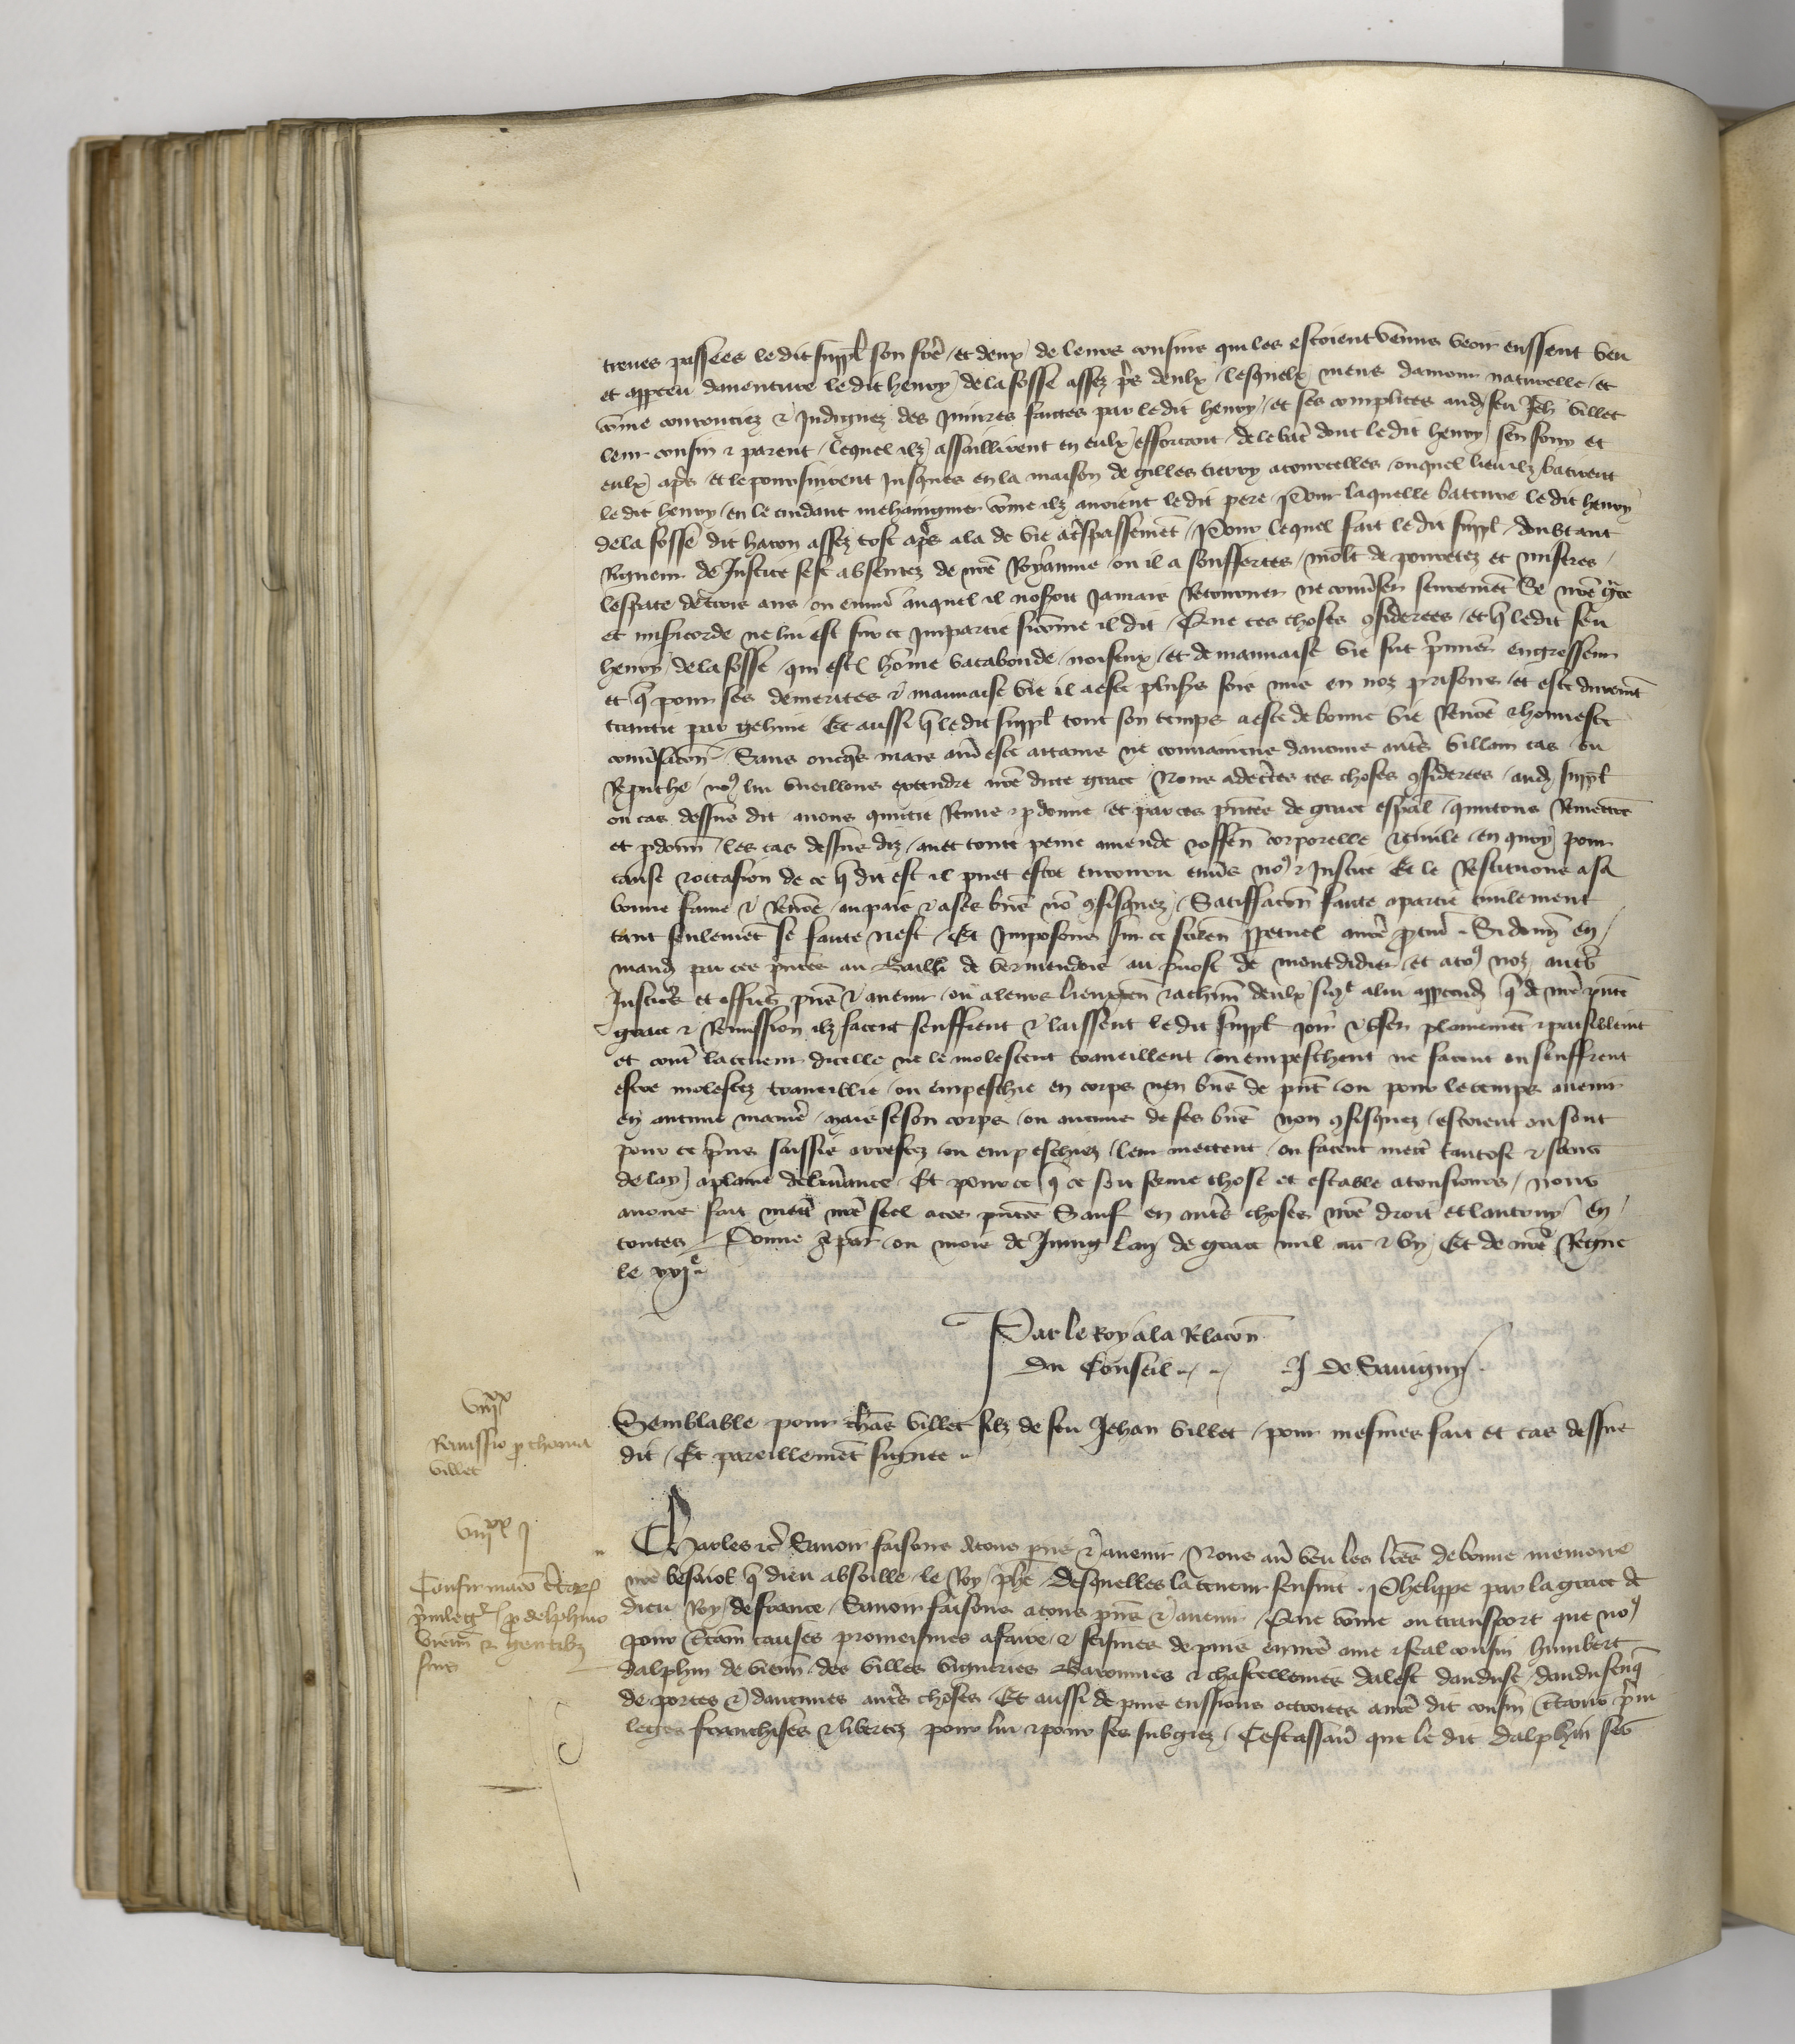 treues passees ledit suppl son frere et deux de leurs cousins qui les estoient venus veoir eussent veu
et apperceu dauenture ledit henry de la fosse assez pres deulx lesquelx meus damour naturelle et
comme courrouciez & Indignez des Iniures faictes par ledit henry et ses complices aud feu Jeh villet
leur cousin & parent lequel ilz assaillirent en eulx efforcant de le batre dont ledit henry sen fouy et
eulx apres et le poursuirent Jusques en la maison de gilles tierry a courcelles ouquel lieu ilz batirent
ledit henry en le cuidant mehaingner comme ilz auoient ledit pere Pour laquelle bateure ledit henry
de la fosse dit hacon assez tost apres ala de vie a trespassement Pour lequel fait ledit suppl doubtant
Rigueur de Justice sest absentez de nre Royaume ou il a souffertes molt de pouretez et miseres
lespace de trois ans ou enuiron auquel il noseroit Jamais Retourner ne conuerser seurement Se nre grace
et misericorde ne lui est sur ce Impartie sicomme il dit Que ces choses considerees et que ledit feu
henry de la fosse qui estoit homme vacabonde noiseux et de mauuaise vie fut premier engresseur
et que pour ses demerites & mauuaise vie il a este plusieurs fois mis en noz prisons et este durement
traictie par gehine Et aussi que ledit suppl tout son temps a este de bonne vie Renommee & honneste
conuersacion Sans oncques mais auoir este attains ne conuaincus daucun autre villain cas ou
Reprouche nous lui vueillons extendre nre dicte grace Nous adecertes ces choses considerees aud suppl
ou cas dessus dit auons quictie Remis & pardonne et par ces presentes de grace especial quictons Remettons
et pardonnons les cas dessus diz auec toute peine amende & offense corporelle & ciuile en quoy pour
cause & occasion de ce que dit est il puet estre encouru enuers nous & Justice Et le Restituons a sa
bonne fame & Renommee au pais & a ses biens non confisquez Satisfacion faicte a partie ciuilement
tant seulement se faicte nest Et Imposons sur ce silence perpetuel a nre procureur Si donnons en
mandement par ces presentes au Bailli de vermendois au preuost de montdidier et a tous noz autres
Justiciers et officiers presens & auenir ou a leurs lieuxtenans & a chascun deulx sicomme a lui appartendra que de nre presente
grace & Remission ilz facent seuffrent & laissent ledit suppl joir & vser plainement & paisiblement
et contre la teneur dicelle ne le molestent trauaillent ou empeschent ne facent ou seuffrent
estre molestez trauaillie ou empeschie en corps nen biens de present ou pour le temps auenir
en aucune maniere mais se son corps ou aucuns de ses biens non confisquez estoient ou sont
pour ce prins saissis arrestez ou empeschiez leur mettent ou facent mettre tantost & sans
delay a plaine deliurance Et pour ce que ce soit ferme chose et estable a tousiours nous
auons fait mettre nre seel a ces presentes Sauf en autres choses nre droit et lautruy en
toutes Donne a paris ou mois de Juing lan de grace mil CCCC & vn Et de nre Regne
le xxje
Par le Roy a la Relacion
du Conseil J de Sauigny
viijxx
Remissio pro thoma
villet
Semblable pour thomas villet filz de feu Jehan villet pour mesmes fait et cas dessus
dit Et pareillement signee
viijxx j
Confirmacio
priuilegiorum pro delphino
viennensi & gentibus
suis
Charles etc Sauoir faisons a tous presens & auenir Nous auoir veu les lettres de bonne memoire
nre besaiol que dieu absoille le Roy phe desquelles la teneur sensuit Phelippe par la grace de
dieu Roy de france Sauoir faisons a tous presens & auenir Que comme ou transport que nous
pour certaines causes promeismes a faire & feismes depuis a nre ame & feal cousin humbert
dalphin de viennois des villes vigueries Baronnies & chastellenies dalest danduse
de portes & daucunes autres choses Et aussi depuis eussions octroiees a nre dit cousin certains priui
leges franchises & libertez pour lui & pour ses subgiez Cest assauoir que le dit dalphin ses